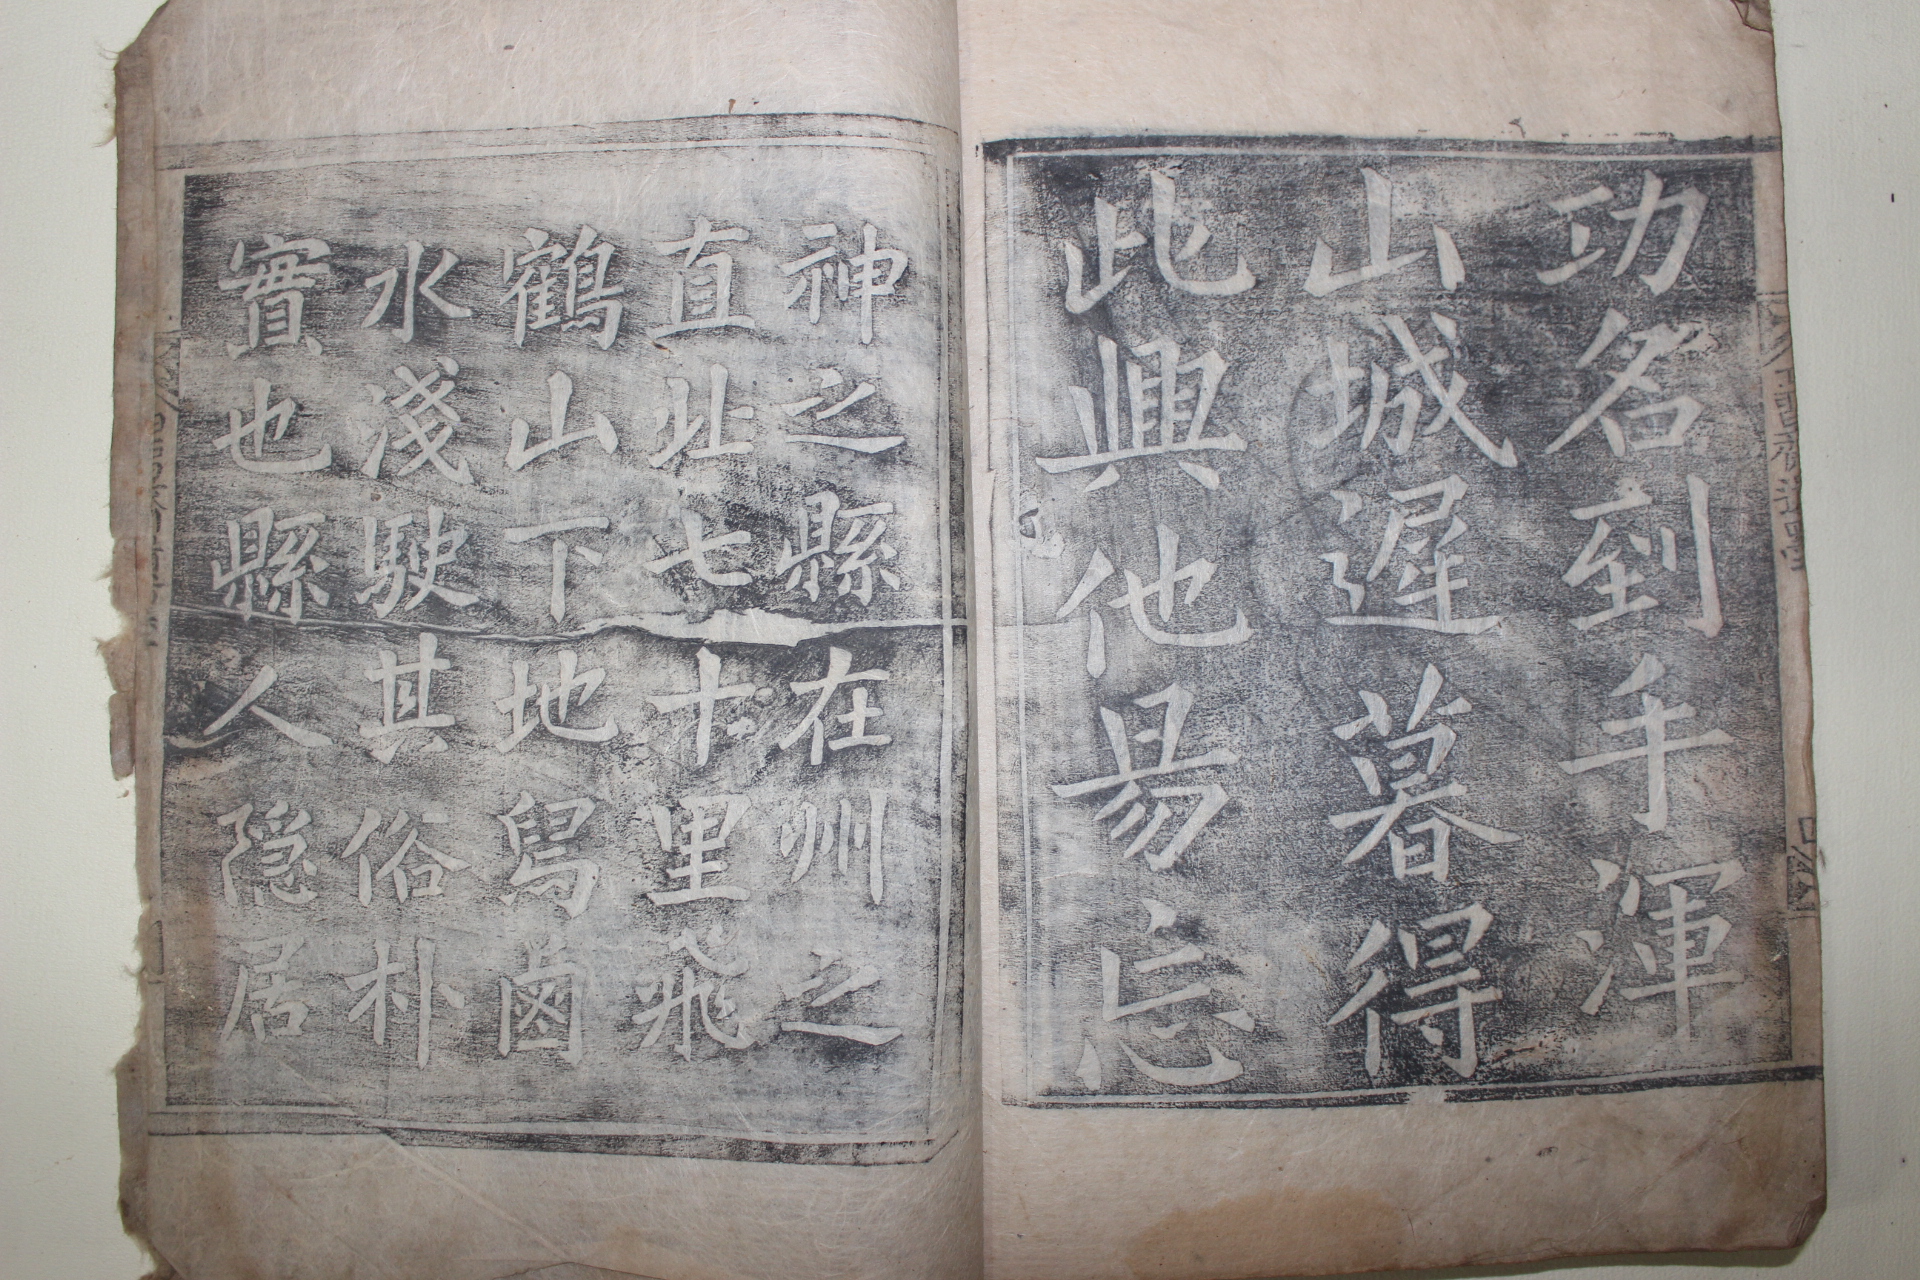 功名到手渾
山城遲暮得
此興他昜忘
神之縣在州之
直北七十里飛
鶴山下地舄鹵
水淺駛其俗朴
實也縣人隱居